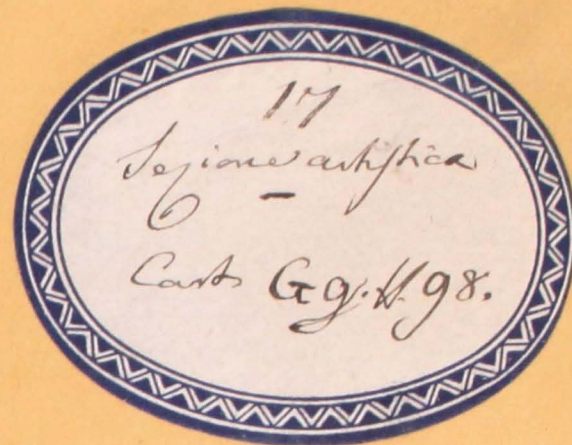 17
Sezione artistica
–
Cart. Gg. 98.